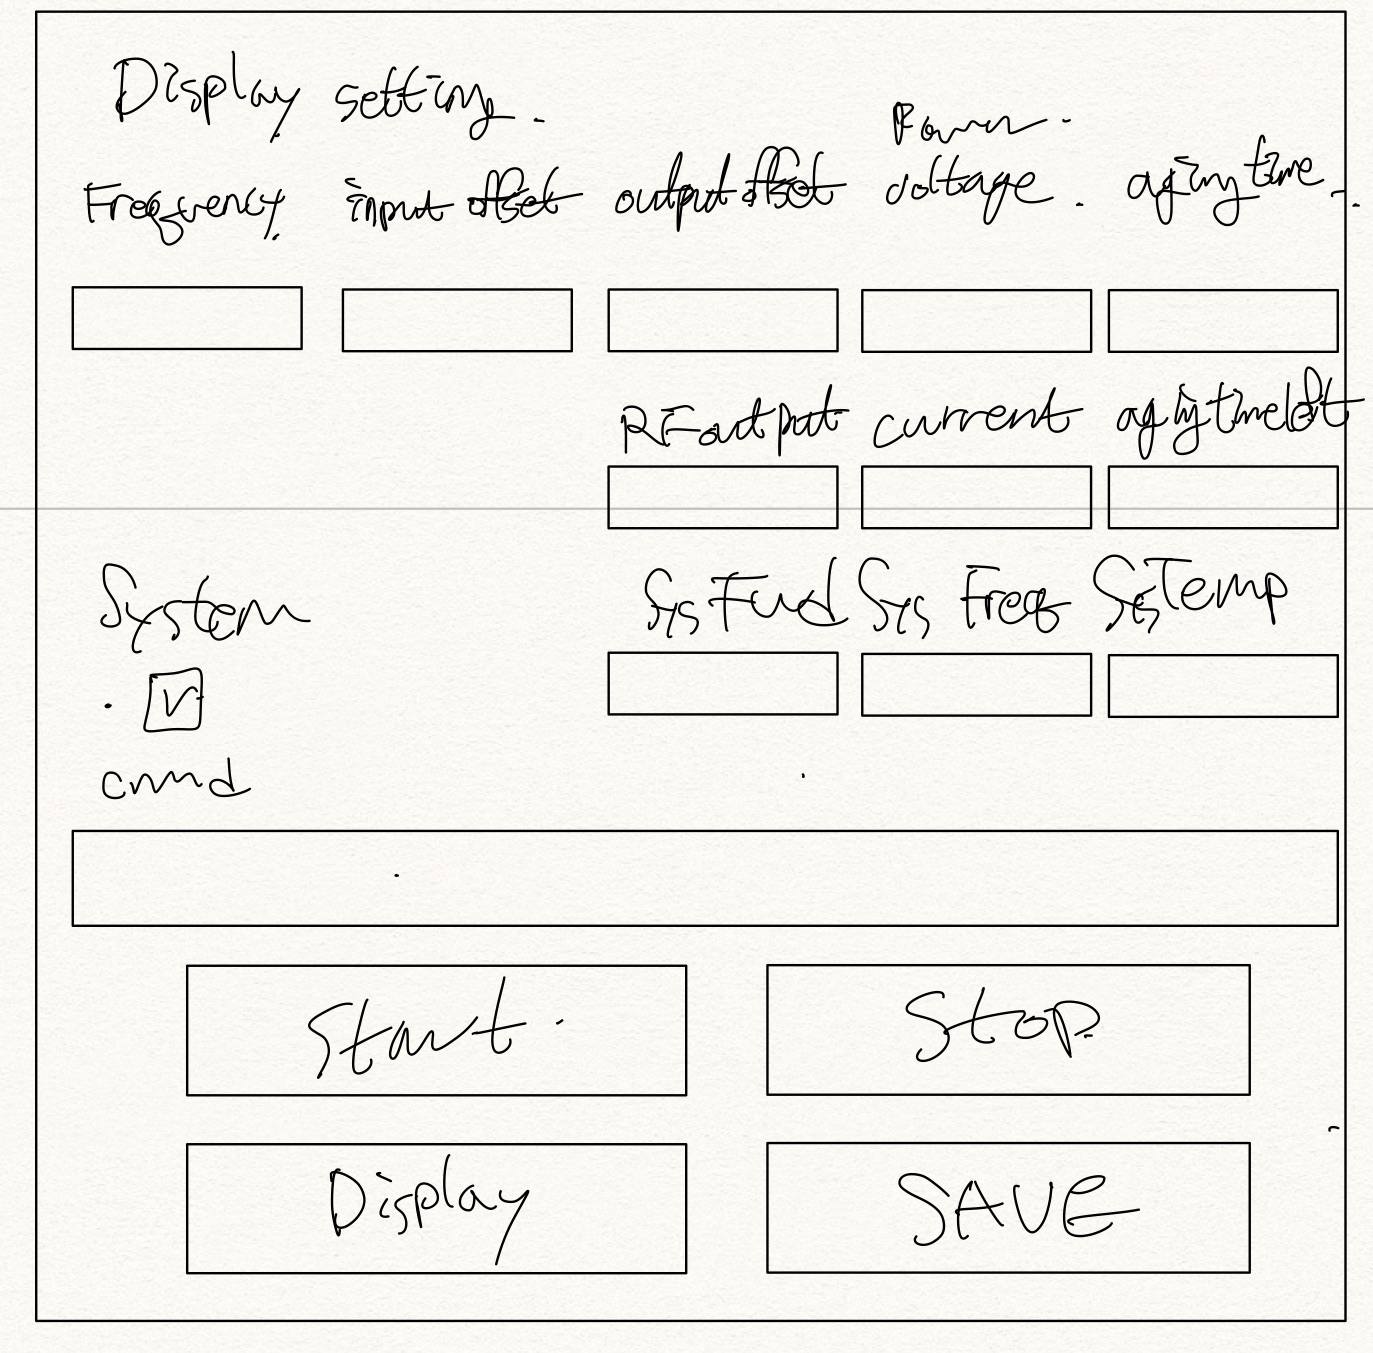 Display setting.
Power
Frequency input offset output offset voltage. aging time.
RF output current aging time left
System Sys Fwd Sys Freq Sys Temp
cmd
Start Stop
Display SAVE